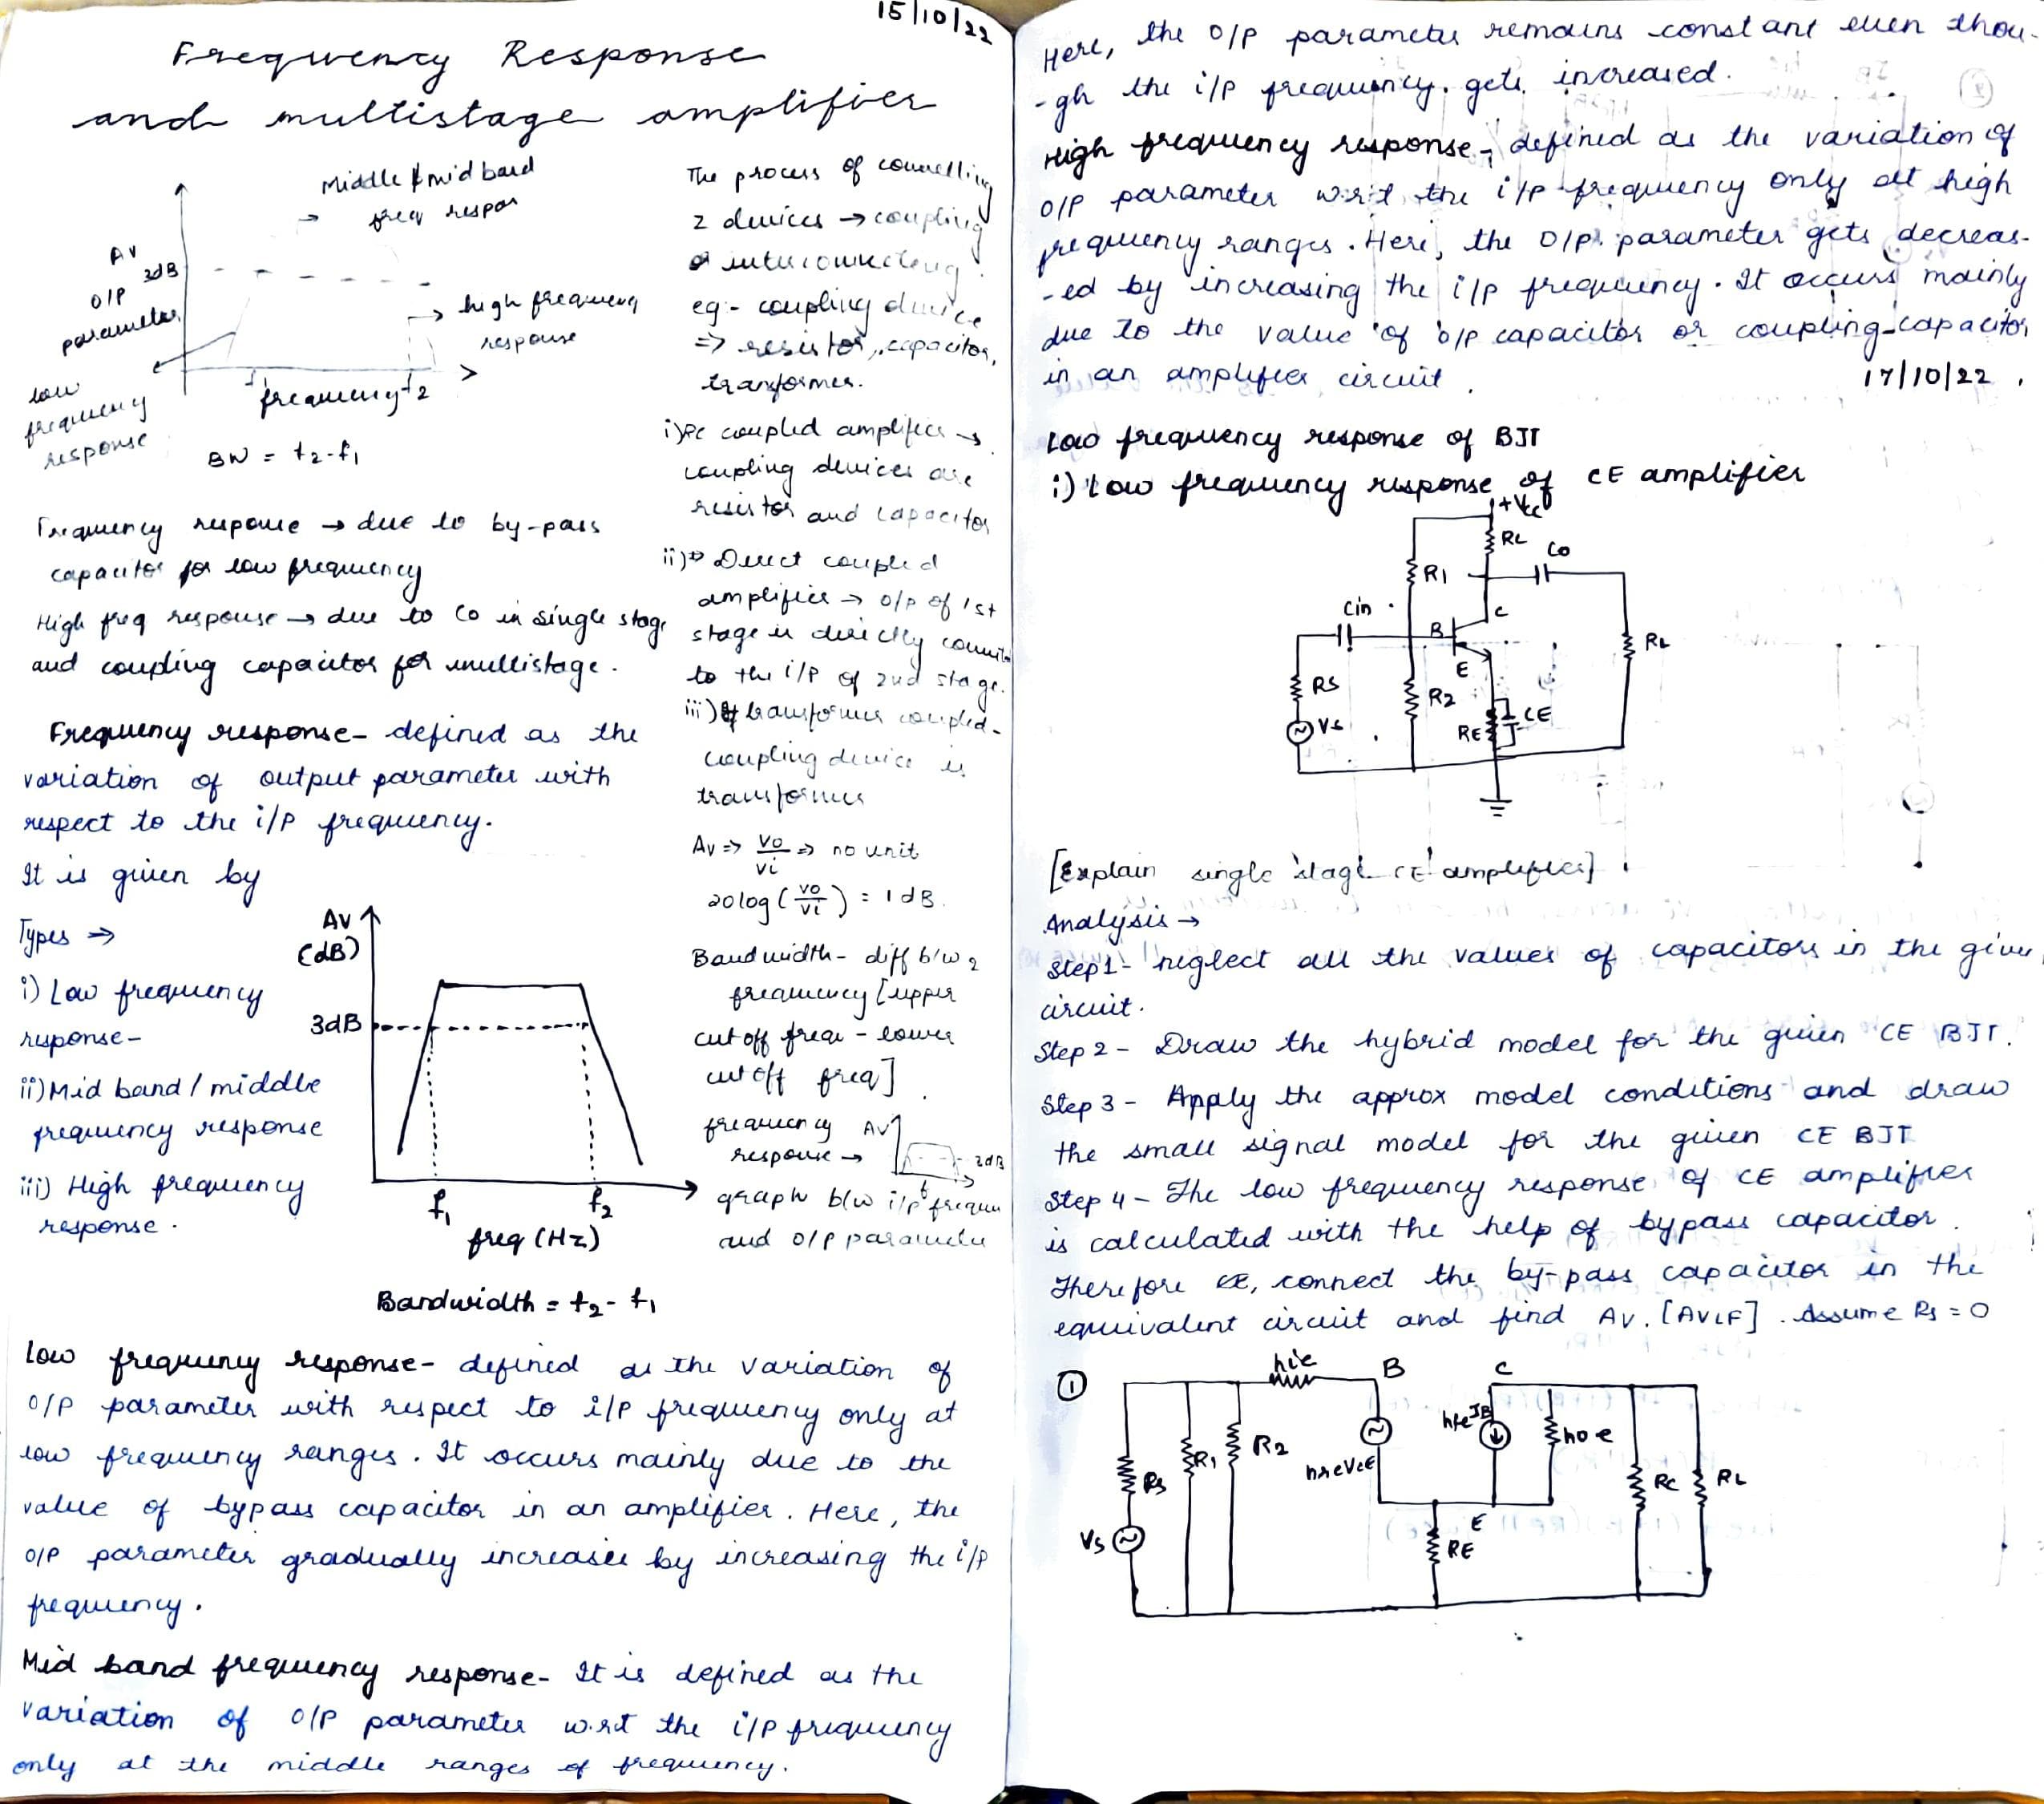 15/10/22
Frequency Response
and multistage amplifier
Middle / mid band
freq respon
Av
3dB
O/P
parameter
high frequency
response
low
frequency
response
f1
frequency f2
BW = f2-f1
Frequency response → due to by-pass
capacitor for low frequency
High freq response → due to Co in single stage
and coupling capacitor for multistage.
The process of connelling
2 devices → coupling
or interconnecting.
eg:- coupling device
=> resistor, capacitor,
transformer.
i) RC coupled amplifier →
coupling devices are
resistor and capacitor
ii) Direct coupled
amplifier → o/p of 1st
stage is directly connected
to the i/p of 2nd stage.
iii) transformer coupled-
coupling device is
transformer
Av => Vo/Vi => no unit
20log(Vo/Vi) = 1dB.
Bandwidth - diff b/w 2
frequency [upper
cutoff freq - lower
cutoff freq]
frequency
response →
Av
3dB
f
graph b/w i/p frequn
and o/p parameter
Frequency response- defined as the
variation of output parameter with
respect to the i/p frequency.
It is given by
Types →
i) Low frequency
response-
ii) Mid band / middle
frequency response
iii) High frequency
response.
Av
(dB)
3dB
f1
f2
freq (Hz)
Bandwidth = f2- f1
Low frequency response- defined as the variation of
O/P parameter with respect to i/p frequency only at
low frequency ranges. It occurs mainly due to the
value of bypass capacitor in an amplifier. Here, the
O/P parameter gradually increases by increasing the i/p
frequency.
Mid band frequency response- It is defined as the
variation of O/P parameter w.r.t the i/p frequency
only at the middle ranges of frequency.
Here, the O/P parameter remains constant even thou-
-gh the i/p frequency gets increased.
High frequency response- defined as the variation of
O/P parameter w.r.t the i/p frequency only at high
frequency ranges. Here, the O/P parameter gets decreas-
-ed by increasing the i/p frequency. It occurs mainly
due to the value of o/p capacitor or coupling capacitor
in an amplifier circuit.
17/10/22.
Low frequency response of BJT
i) Low frequency response of CE amplifier
+Vcc
RC
Co
R1
Cin
C
B
E
RL
RS
R2
Vs
RE
CE
[Explain single stage CE amplifier]
Analysis →
Step1- neglect all the values of capacitors in the given
circuit.
Step 2 - Draw the hybrid model for the given CE BJT.
Step 3 - Apply the approx model conditions and draw
the small signal model for the given CE BJT
Step 4 - The low frequency response of CE amplifier
is calculated with the help of bypass capacitor.
Therefore CE, connect the by-pass capacitor in the
equivalent circuit and find Av. [AVLF]. Assume Rs = 0
1
hie
B
C
hfeIB
hoe
R1
R2
hreVCE
Rs
RC
RL
Vs
E
RE